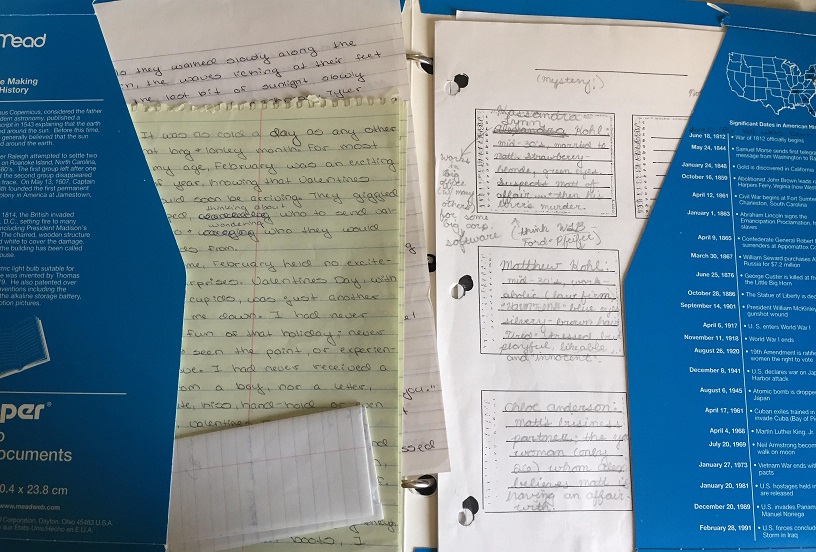 Mead
Making
History
us Copernicus, considered the father
dern astronomy, published a
script in 1543 explaining that the earth
ed around the sun. Before this time,
generally believed that the sun
d around the earth.
er Raleigh attempted to settle two
on Roanoke Island, North Carolina,
80's. The first group left after one
the second group disappeared
trace. On May 13, 1607, Captain
ith founded the first permanent
olony in America at Jamestown.
1814, the British invaded
D.C., setting fire to many
including President Madison's
The charred, wooden structure
d white to cover the damage.
the building has been called
ouse.
tric light bulb suitable for
e was invented by Thomas
79. He also patented over
ventions including the
the alkaline storage battery,
otion pictures.
per®
o
ocuments
0.4 x 23.8 cm
www.meadweb.com
Corporation, Dayton, Ohio 45463 U.S.A.
o they walked slowly along the
the waves at their feet
the last bit of sunlight slowly
Tyler
It was as cold a day as any other
at long + lonely month. For most
my age, February was an exciting
year, knowing that Valentines
uld soon be arriving. They giggled
thinking about
who to send
wondering
who they would
ds from.
me, February held no excite-
rprises. Valentines Day, with
cupids, was just another
me down. I had never
fun of that holiday; never
seen the point, or experien-
ve. I had never received a
om a boy, nor a letter,
te, kiss, hand-hold or even
valentine
you."
ssed
(mystery!)
Kassandra
Kohl:
mid-30's, married to
matt, strawberry-
blonde, green eyes.
suspects Matt of
affair - then his
lover's murder.
works
in
big
office
(w/ many
others)
for some
big corp.
software
(think W&B
Ford-Pfeifer)
Matthew Kohl:
mid-30's, work-
aholic (law firm)
silvery-brown hair
tired + stressed but
playful, likeable,
and innocent.
Chloe Anderson:
matt's business
partner; the yo
woman (only
26) whom
believes matt is
having an affair
with.
Significant Dates in American His
June 18, 1812 • War of 1812 officially begins
May 24, 1844 • Samuel Morse sends first telegra
message from Washington to Ba
January 24, 1848 • Gold is discovered in California
October 16, 1859 • Abolitionist John Brown leads
Harpers Ferry, Virginia (now West
April 12, 1861 • Civil War begins at Fort Sumter
Charleston, South Carolina
January 1, 1863 • Abraham Lincoln signs the
Emancipation Proclamation, fr
slaves
April 9, 1865 • Confederate General Robert
surrenders at Appomattox Co
March 30, 1867 • William Seward purchases A
Russia for $7.2 million
June 25, 1876 • George Custer is killed at th
the Little Big Horn
October 28, 1886 • The Statue of Liberty is dec
September 14, 1901 • President William McKinley
gunshot wound
April 6, 1917 • U.S. enters World War I
November 11, 1918 • World War I ends
August 26, 1920 • 19th Amendment is ratifie
women the right to vote
December 8, 1941 • U.S. declares war on Jap
Harbor attack
August 6, 1945 • Atomic bomb is droppe
Japan
April 17, 1961 • Cuban exiles trained in
invade Cuba (Bay of P
April 4, 1968 • Martin Luther King, Jr.
July 20, 1969 • Neil Armstrong becom
walk on moon
January 27, 1973 • Vietnam War ends with
pacts
January 20, 1981 • U.S. hostages held in
are released
December 20, 1989 • U.S. invades Panam
Manuel Noriega
February 28, 1991 • U.S. forces conclude
Storm in Iraq